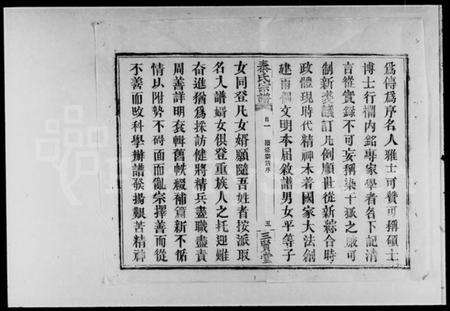 爲傳爲序名人雅士可贊可稱碩士
博士行欄内銘專家學者名下記清
言從實錄不可妄稱染十狐之嚴可
創新彙議訂凡例顧世從新綜合時
政體現時代精神本着國家大法創
建兩個文明本届敘譜男女平等子
秦氏宗譜
卷一
五
三賢堂
女同登凡女婿願隨吾姓者按派取
名入譜婦女俱登重族人之托迎難
奮進猶爲採訪健將精兵盡職盡責
周善詳明衮輯舊帙綴補篇新不循
情以附勢不碍面而亂宗擇善而從
不善而改科學辦譜發揚艱苦精神